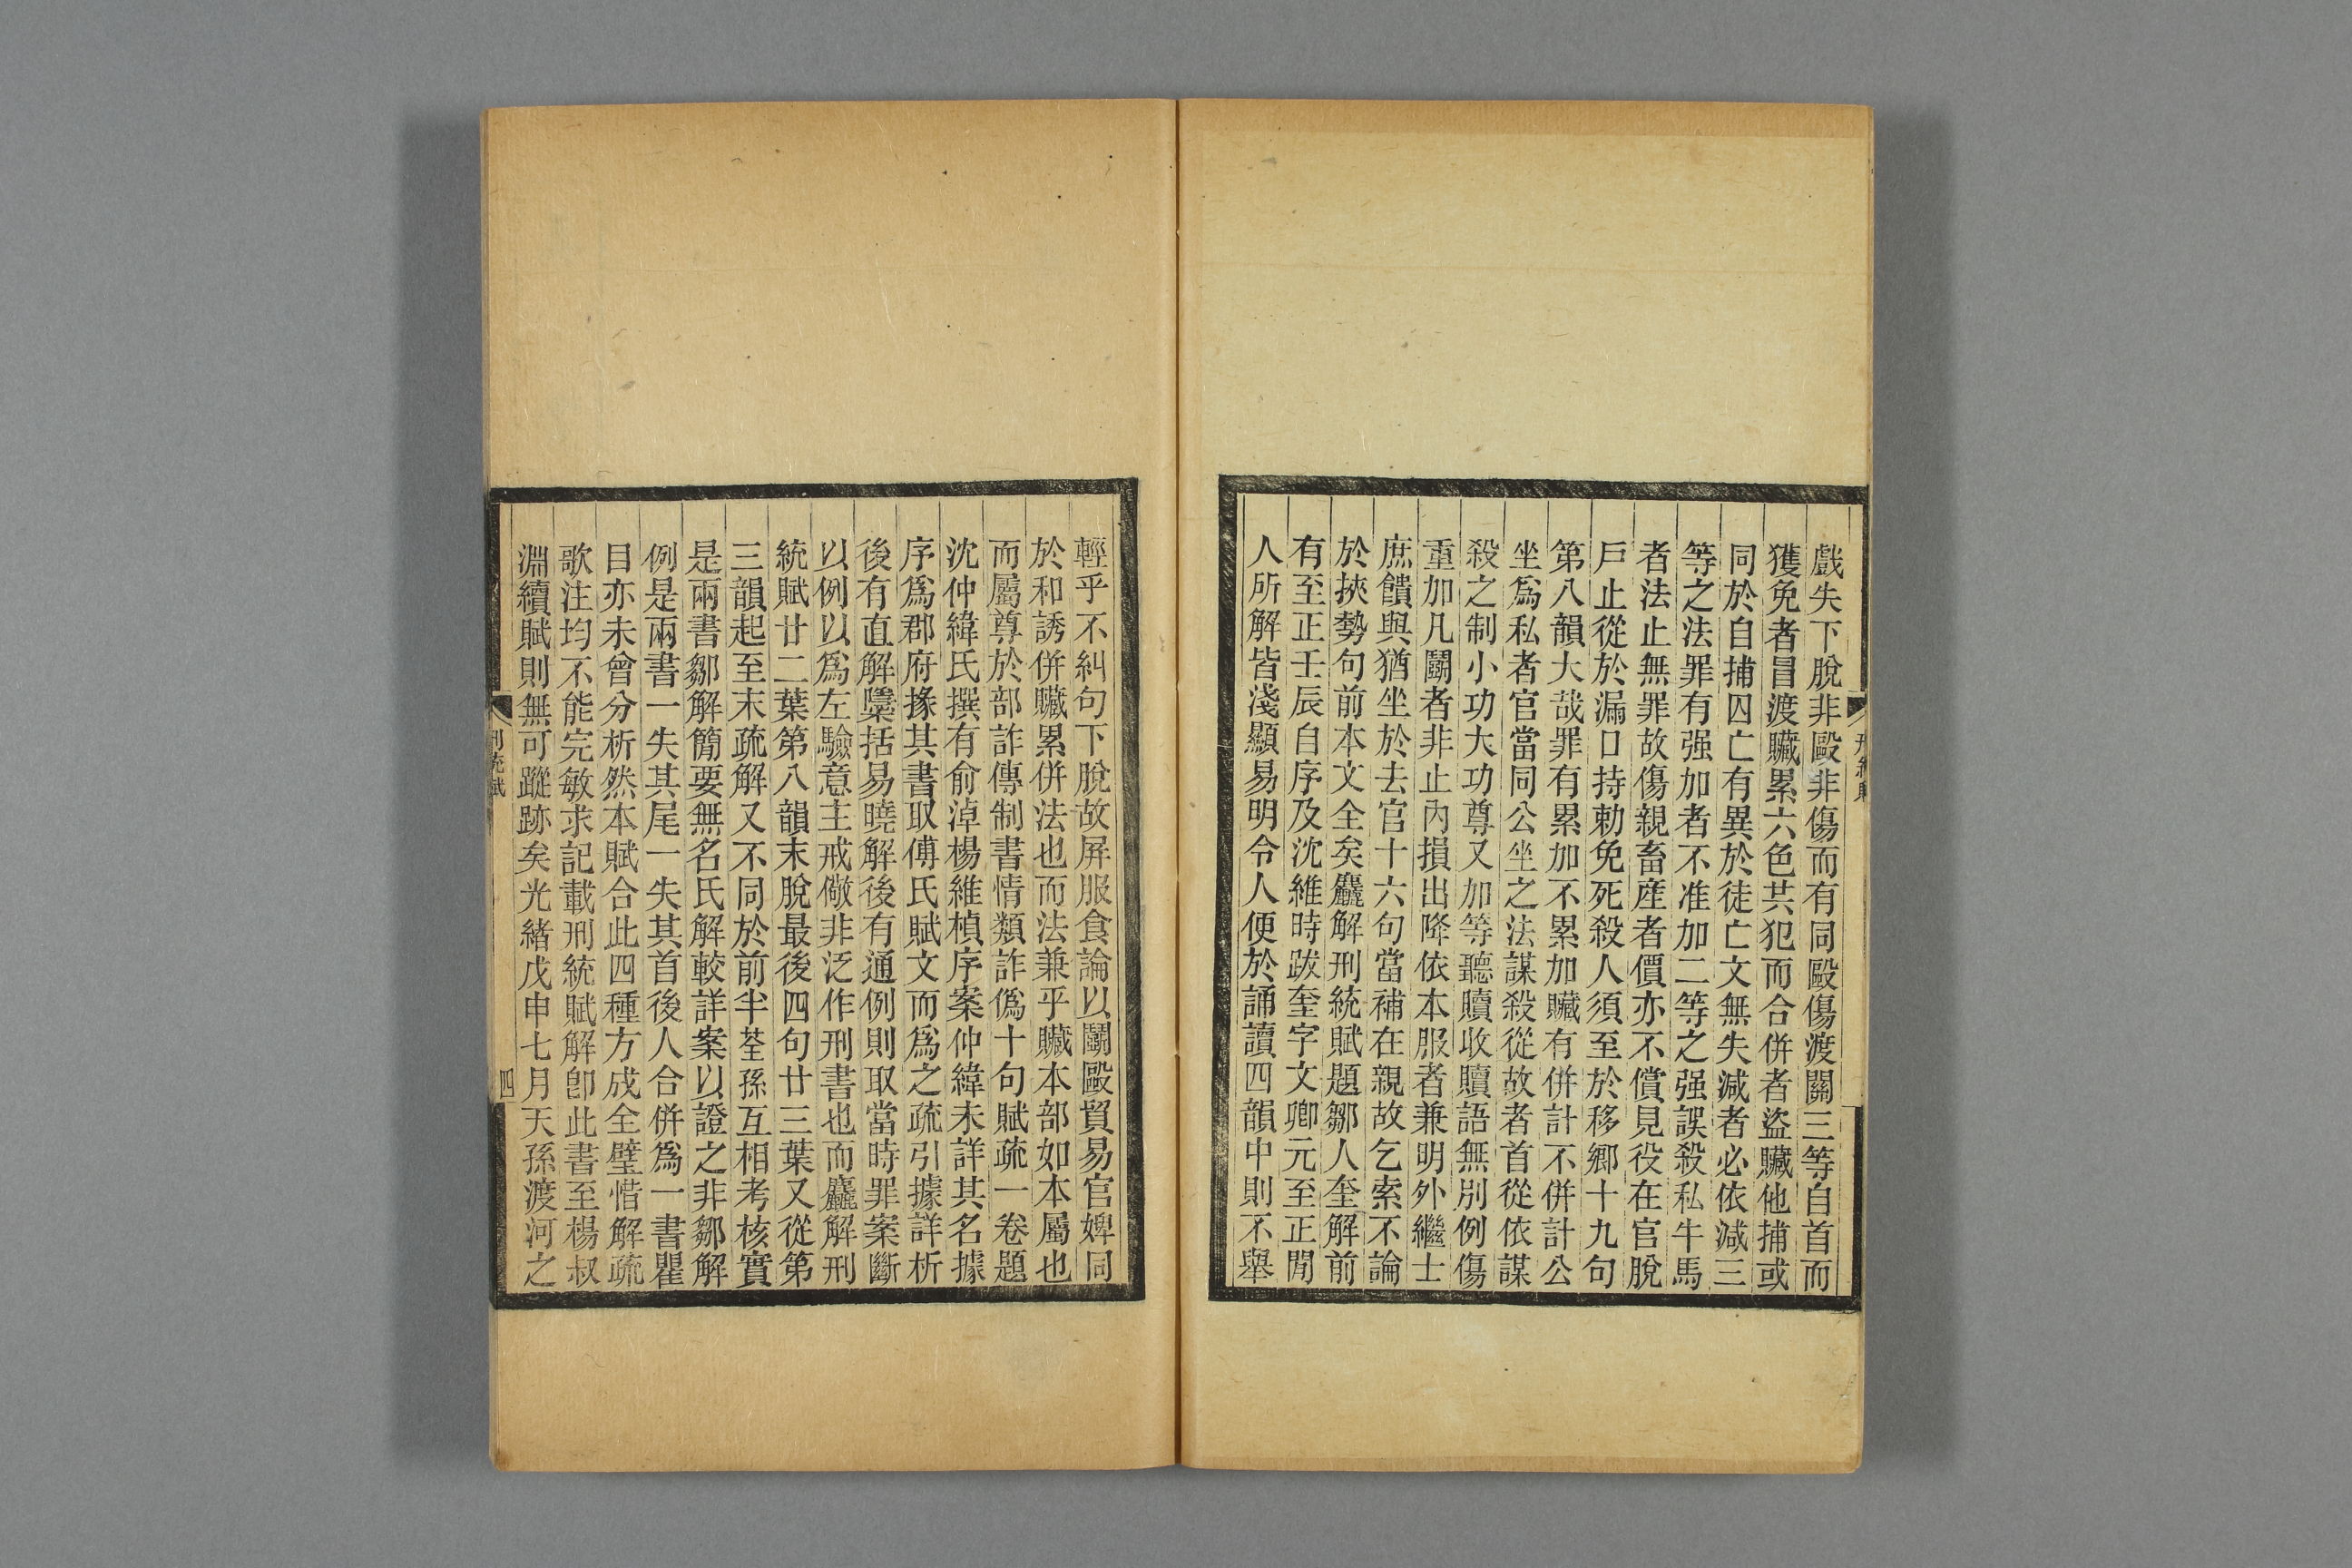 戲失下脫非毆非傷而有同毆傷渡關三等自首而
獲免者冒渡贓累六色共犯而合併者盜贓他捕或
同於自捕囚亡有異於徒亡文無失減者必依減三
等之法罪有强加者不准加二等之强誤殺私牛馬
者法止無罪故傷親畜產者價亦不償見役在官脫
戶止從於漏口持勅免死殺人須至於移鄉十九句
第八韻大哉罪有累加不累加贓有併計不併計公
坐爲私者官當同公坐之法謀殺從故者首從依謀
殺之制小功大功尊又加等聽贖收贖語無別例傷
重加凡鬭者非止內損出降依本服者兼明外繼士
庶饋與猶坐於去官十六句當補在親故乞索不論
於挾勢句前本文全矣麤解刑統賦題鄒人奎解前
有至正壬辰自序及沈維時跋奎字文卿元至正閒
人所解皆淺顯易明令人便於誦讀四韻中則不舉
輕乎不糾句下脫故屏服食論以鬭毆貿易官婢同
於和誘併贓累併法也而法兼乎贓本部如本屬也
而屬尊於部詐傳制書情類詐僞十句賦疏一卷題
沈仲緯氏撰有俞淖楊維楨序案仲緯未詳其名據
序爲郡府掾其書取傅氏賦文而爲之疏引據詳析
後有直解櫽括易曉解後有通例則取當時罪案斷
以例以爲左驗意主戒儆非泛作刑書也而麤解刑
統賦廿二葉第八韻末脫最後四句廿三葉又從第
三韻起至末疏解又不同於前半荃孫互相考核實
是兩書鄒解簡要無名氏解較詳案以證之非鄒解
例是兩書一失其尾一失其首後人合併爲一書瞿
目亦未曾分析然本賦合此四種方成全璧惜解疏
歌注均不能完敏求記載刑統賦解卽此書至楊叔
淵續賦則無可蹤跡矣光緒戊申七月天孫渡河之
刑統賦
四